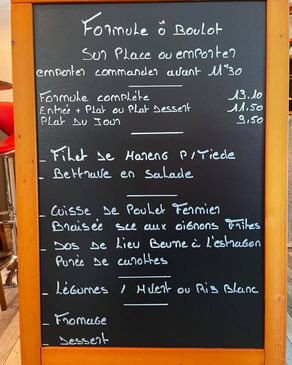 Formule ô Boulot
Sur Place ou emporter
emporter commander avant 11H30
Formule complète 13.10
Entrée + Plat ou Plat Dessert 11.50
Plat Du Jour 9,50
_ Filet De Hareng P/Tiède
_ Bettrave en Salade
_ Cuisse de Poulet Fermier
Braisée sce aux oignons Frites
_ Dos de Lieu Beurre à l'estragon
Purée de carottes
_ Légumes / H.vert ou Riz Blanc
_ Fromage
_ Dessert